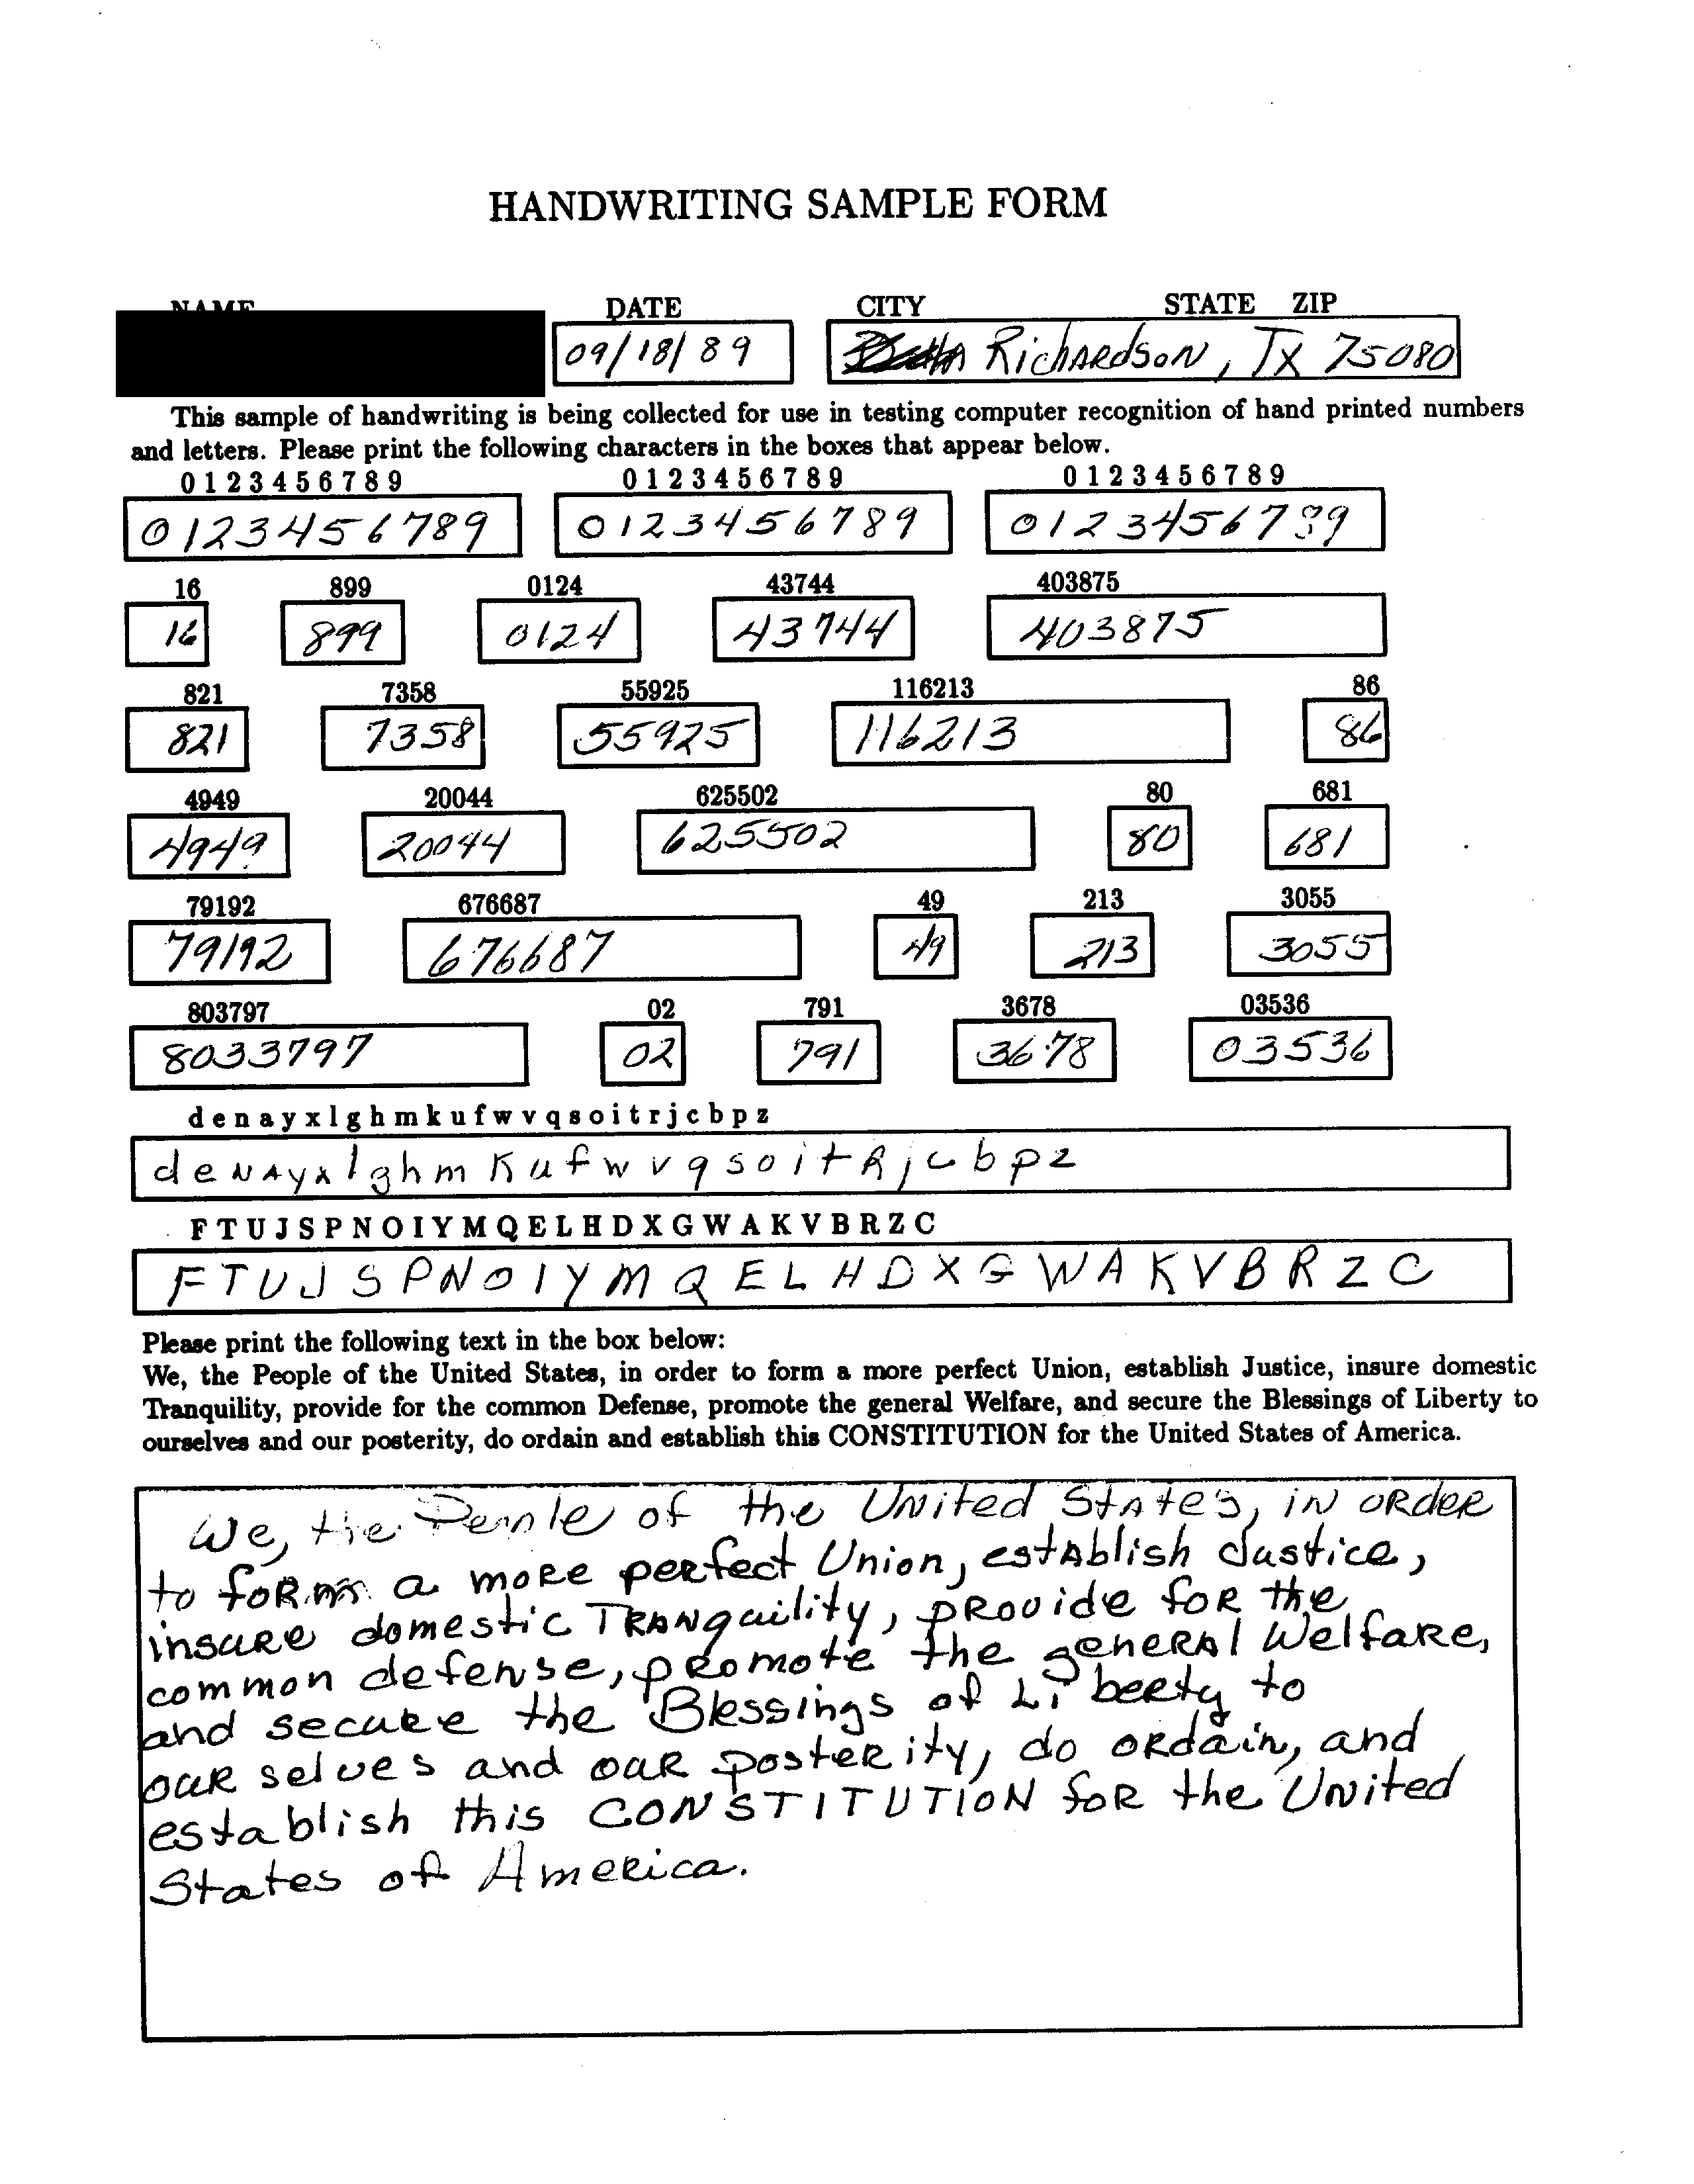 HANDWRITING SAMPLE FORM
NAME DATE CITY STATE ZIP
09/18/89 Richardson, TX 75080
This sample of handwriting is being collected for use in testing computer recognition of hand printed numbers
and letters. Please print the following characters in the boxes that appear below.
0 1 2 3 4 5 6 7 8 9 0 1 2 3 4 5 6 7 8 9 0 1 2 3 4 5 6 7 8 9
0123456789 0123456789 0123456789
16 899 0124 43744 403875
16 899 0124 43744 403875
821 7358 55925 116213 86
821 7358 55925 116213 86
4949 20044 625502 80 681
4949 20044 625502 80 681
79192 676687 49 213 3055
79192 676687 49 213 3055
803797 02 791 3678 03536
8033797 02 791 3678 03536
d e n a y x l g h m k u f w v q s o i t r j c b p z
d e N A y x l g h m K u f w v q s o i t R j c b p z
F T U J S P N O I Y M Q E L H D X G W A K V B R Z C
F T U J S P N O I Y M Q E L H D X G W A K V B R Z C
Please print the following text in the box below:
We, the People of the United States, in order to form a more perfect Union, establish Justice, insure domestic
Tranquility, provide for the common Defense, promote the general Welfare, and secure the Blessings of Liberty to
ourselves and our posterity, do ordain and establish this CONSTITUTION for the United States of America.
We, the People of the United States, in order
to form a more perfect Union, establish Justice,
insure domestic Tranquility, provide for the
common defense, promote the general Welfare,
and secure the Blessings of Liberty to
our selves and our posterity, do ordain, and
establish this CONSTITUTION for the United
States of America.